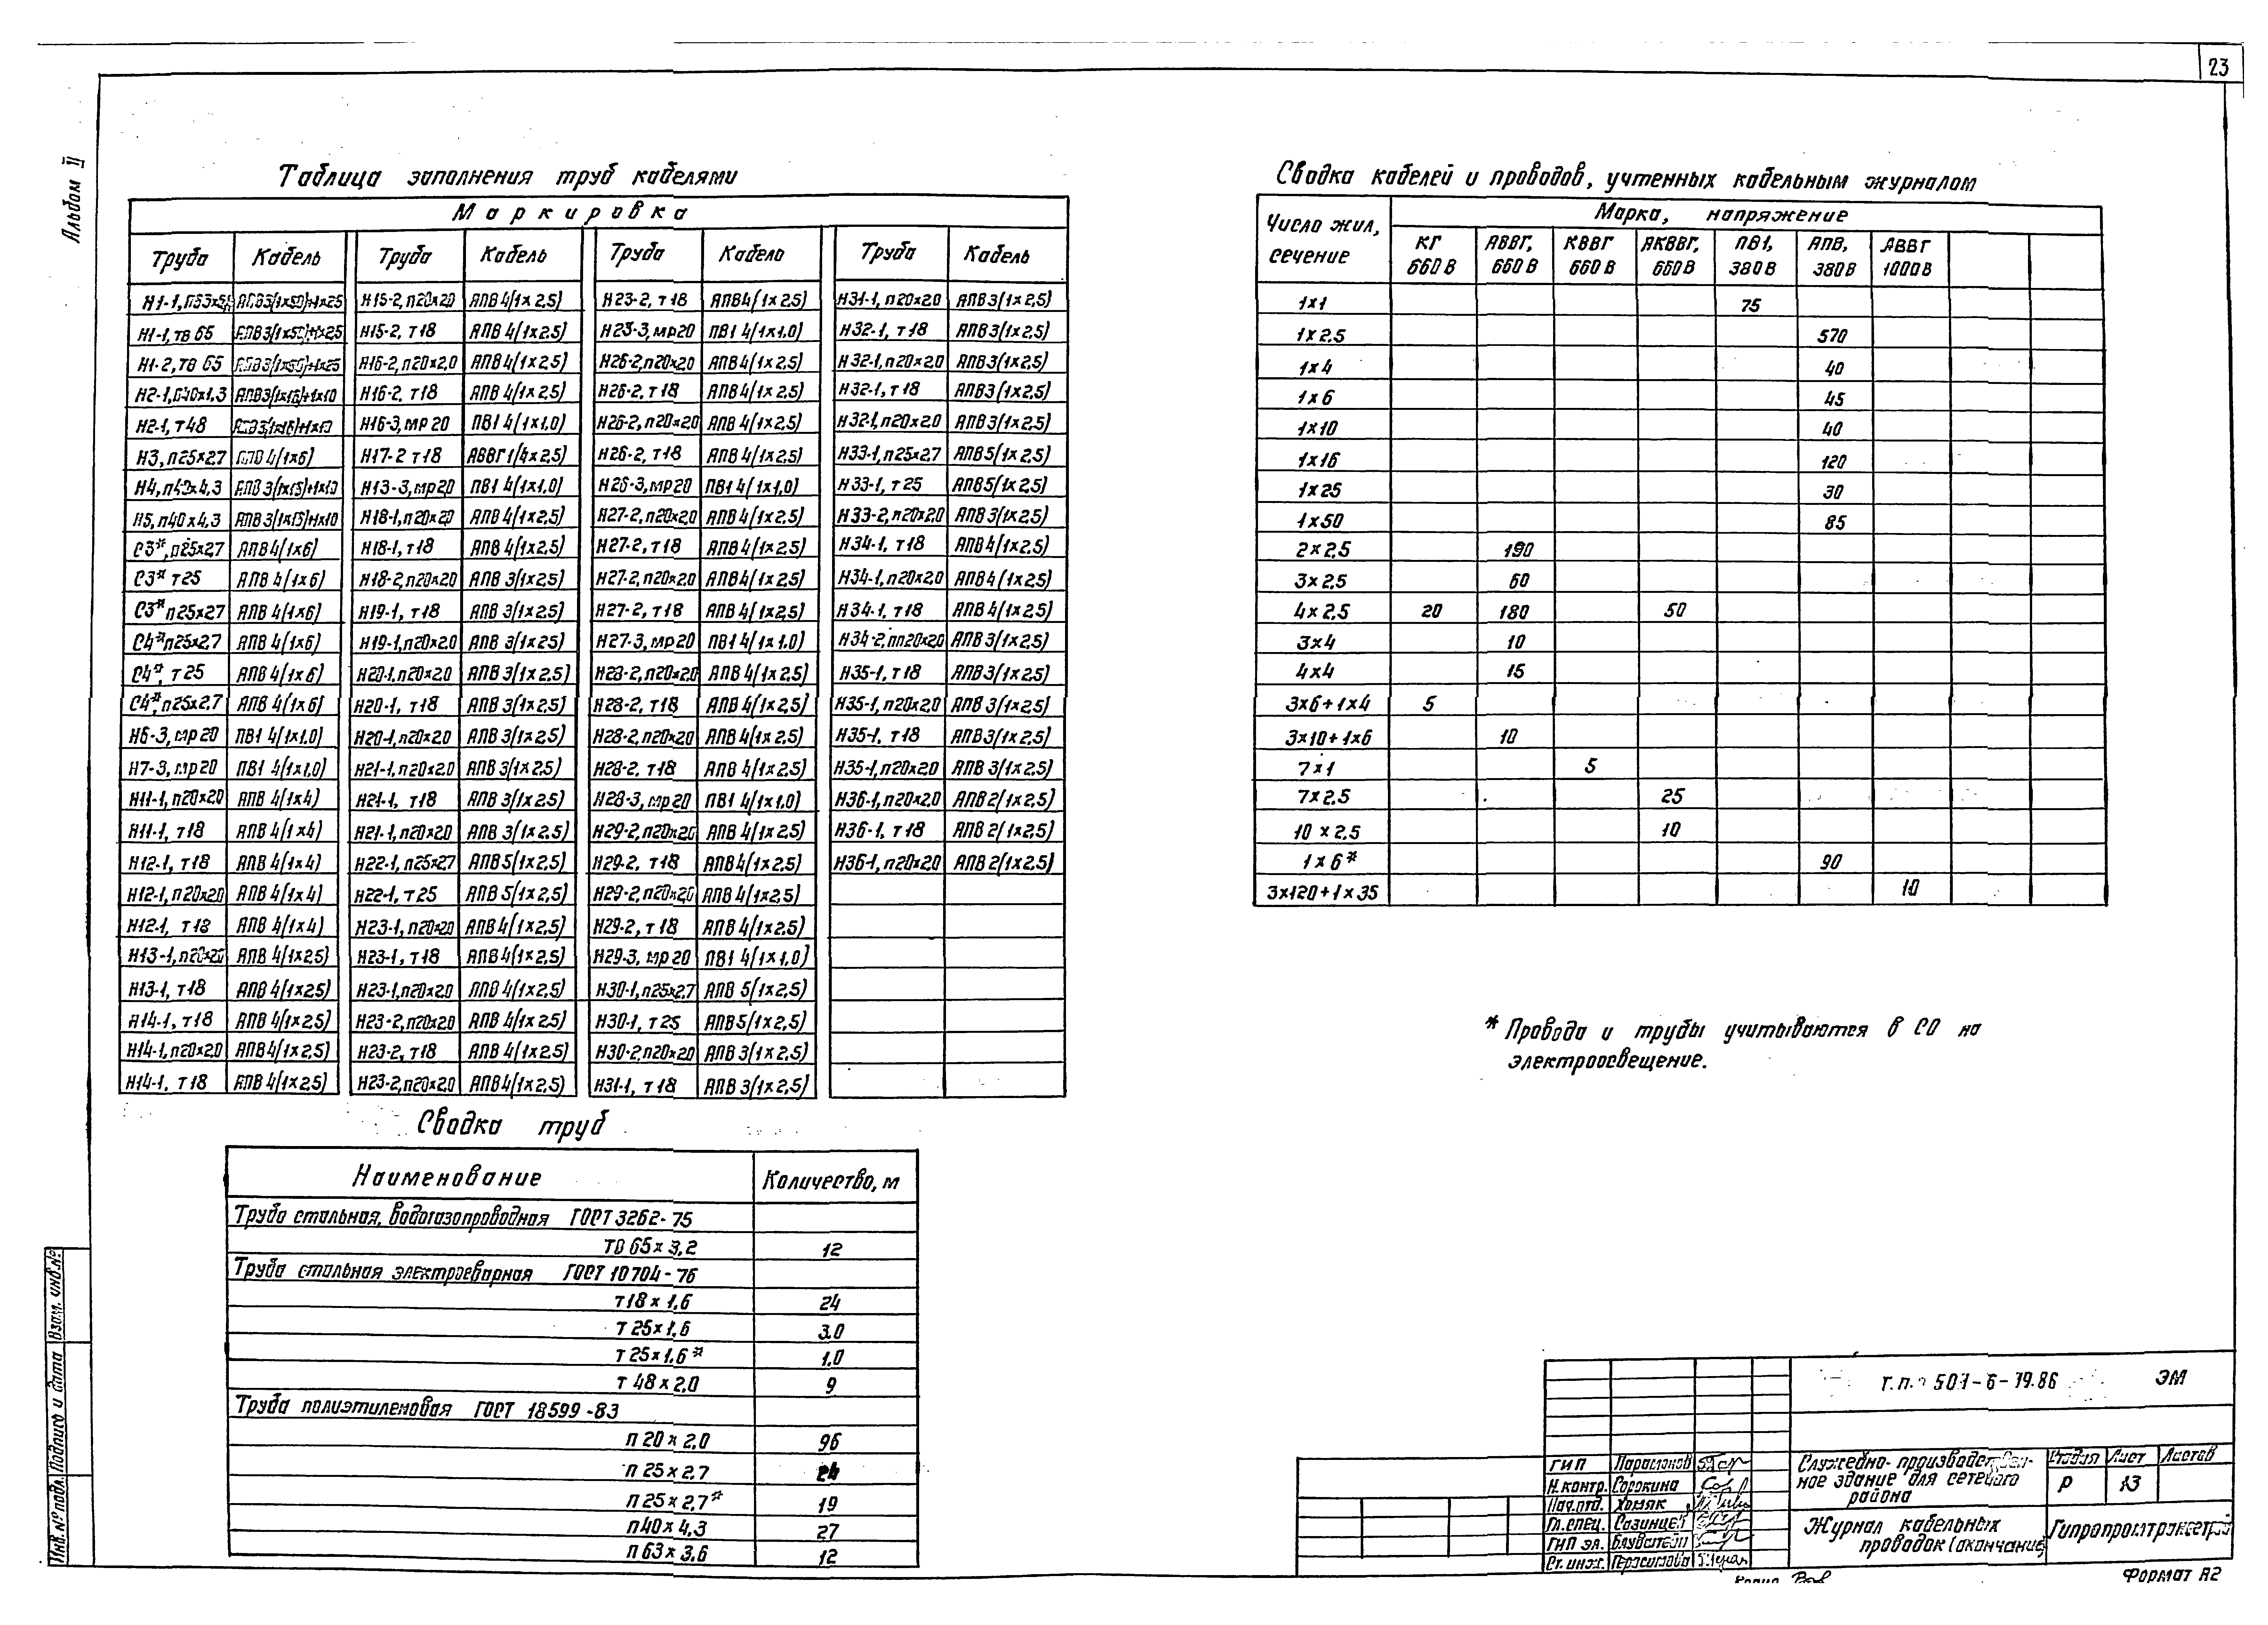 23
Альбом II
Таблица заполнения труб кабелями
Маркировка
Труба Кабель Труба Кабель Труба Кабель Труба Кабель
Н1-1, АПВ3(1х50)+1х25 Н15-2, п20х2.0 АПВ 4(1х2,5) Н23-2, т18 АПВ4(1х2,5) Н31-1, п20х2.0 АПВ3(1х2,5)
Н1-1, тв 65 АПВ3(1х50)+1х25 Н15-2, т18 АПВ 4(1х2.5) Н23-3, мр20 ПВ1 4(1х1,0) Н32-1, т18 АПВ3(1х2,5)
Н1-2, тв 65 АПВ3(1х50)+1х25 Н16-2, п20х2.0 АПВ4(1х2,5) Н26-2, п20х2.0 АПВ4(1х2,5) Н32-1, п20х2.0 АПВ3(1х2,5)
Н2-1, АПВ3(1х16)+1х10 Н16-2, т18 АПВ 4(1х2,5) Н26-2, т18 АПВ4(1х2,5) Н32-1, т18 АПВ3(1х2,5)
Н2-1, т48 АПВ3(1х16)+1х10 Н16-3, мр 20 ПВ1 4(1х1,0) Н26-2, п20х2.0 АПВ 4(1х2,5) Н32-1, п20х2.0 АПВ3(1х2,5)
Н3, п25х2.7 АПВ 4(1х6) Н17-2 т18 АВВГ1(4х2,5) Н26-2, т18 АПВ 4(1х2,5) Н33-1, п25х2.7 АПВ5(1х2,5)
Н4, п40х4,3 АПВ 3(1х16)+1х10 Н13-3, мр20 ПВ1 4(1х1,0) Н26-3, мр20 ПВ1 4(1х1,0) Н33-1, т 25 АПВ5(1х2,5)
Н5, п40х4,3 АПВ 3(1х16)+1х10 Н18-1, п20х2.0 АПВ 4(1х2,5) Н27-2, п20х2.0 АПВ 4(1х2,5) Н33-2, п20х2.0 АПВ3(1х2,5)
С3*, п25х2.7 АПВ4(1х6) Н18-1, т18 АПВ 4(1х2,5) Н27-2, т18 АПВ 4(1х2,5) Н34-1, т18 АПВ4(1х2,5)
С3* т25 АПВ 4(1х6) Н18-2, п20х2.0 АПВ 3(1х2,5) Н27-2, п20х2.0 АПВ4(1х2,5) Н34-1, п20х2.0 АПВ4(1х2,5)
С3* п25х2.7 АПВ 4(1х6) Н19-1, т18 АПВ 3(1х2,5) Н27-2, т18 АПВ 4(1х2,5) Н34-1, т18 АПВ4(1х2,5)
С4* п25х2.7 АПВ 4(1х6) Н19-1, п20х2.0 АПВ 3(1х2,5) Н27-3, мр20 ПВ1 4(1х1,0) Н34-2, пп20х2.0 АПВ3(1х2,5)
С4*, т25 АПВ 4(1х6) Н20-1, п20х2.0 АПВ 3(1х2,5) Н28-2, п20х2.0 АПВ 4(1х2,5) Н35-1, т18 АПВ3(1х2,5)
С4*, п25х2.7 АПВ 4(1х6) Н20-1, т18 АПВ 3(1х2.5) Н28-2, т18 АПВ 4(1х2,5) Н35-1, п20х2.0 АПВ 3(1х2,5)
Н6-3, мр 20 ПВ1 4(1х1.0) Н20-1, п20х2.0 АПВ 3(1х2.5) Н28-2, п20х2.0 АПВ 4(1х2.5) Н35-1, т18 АПВ3(1х2,5)
Н7-3, мр20 ПВ1 4(1х1,0) Н21-1, п20х2.0 АПВ 3(1х2,5) Н28-2, т18 АПВ 4(1х2,5) Н35-1, п20х2.0 АПВ 3(1х2,5)
Н11-1, п20х2.0 АПВ 4(1х4) Н21-1, т18 АПВ 3(1х2.5) Н28-3, мр20 ПВ1 4(1х1,0) Н36-1, п20х2.0 АПВ2(1х2,5)
Н11-1, т18 АПВ 4(1х4) Н21-1, п20х2.0 АПВ 3(1х2.5) Н29-2, п20х2.0 АПВ 4(1х2,5) Н36-1, т18 АПВ 2(1х2.5)
Н12-1, т18 АПВ 4(1х4) Н22-1, п25х2.7 АПВ5(1х2,5) Н29-2, т18 АПВ4(1х2,5) Н36-1, п20х2.0 АПВ2(1х2.5)
Н12-1, п20х2.0 АПВ 4(1х4) Н22-1, т 25 АПВ 5(1х2,5) Н29-2, п20х2.0 АПВ 4(1х2,5)
Н12-1, т18 АПВ 4(1х4) Н23-1, п20х2.0 АПВ4(1х2,5) Н29-2, т18 АПВ 4(1х2,5)
Н13-1, п20х2.0 АПВ 4(1х2,5) Н23-1, т18 АПВ4(1х2,5) Н29-3, мр 20 ПВ1 4(1х1,0)
Н13-1, т18 АПВ 4(1х2.5) Н23-1, п20х2.0 АПВ 4(1х2,5) Н30-1, п25х2,7 АПВ 5(1х2,5)
Н14-1, т18 АПВ 4(1х2.5) Н23-2, п20х2.0 АПВ 4(1х2.5) Н30-1, т25 АПВ5(1х2,5)
Н14-1, п20х2.0 АПВ4(1х2,5) Н23-2, т18 АПВ 4(1х2,5) Н30-2, п20х2.0 АПВ 3(1х2,5)
Н14-1, т18 АПВ 4(1х2,5) Н23-2, п20х2.0 АПВ4(1х2,5) Н31-1, т18 АПВ 3(1х2,5)
Сводка труб
Наименование Количество, м
Труба стальная, водогазопроводная ГОСТ 3262-75
ТВ 65х3,2 12
Труба стальная электросварная ГОСТ 10704-76
т18х1,6 24
Т 25х1,6 3.0
Т 25х1.6* 1.0
Т 48х2,0 9
Труба полиэтиленовая ГОСТ 18599-83
П 20х2,0 96
П 25х2,7 24
П 25х2,7* 19
П40х4,3 27
П 63х3,6 12
Сводка кабелей и проводов, учтенных кабельным журналом
Число жил, сечение Марка, напряжение
КГ 660 В АВВГ, 660 В КВВГ 660 В АКВВГ, 660 В ПВ1, 380 В АПВ, 380 В АВВГ 1000 В
1х1 75
1х2,5 570
1х4 40
1х6 45
1х10 40
1х16 120
1х25 30
1х50 85
2х2,5 190
3х2,5 60
4х2,5 20 180 50
3х4 10
4х4 15
3х6+1х4 5
3х10+1х6 10
7х1 5
7х2,5 25
10х2,5 10
1х6* 90
3х120+1х35 10
* Провода и трубы учитываются в СО на
электроосвещение.
Т.п. 501-6-19.86 ЭМ
ГИП Парамонов
Н.контр. Сорокина
Нач.отд. Хомяк
Гл.спец.
ГИП эл.
Ст. инж. Герасимова
Служебно-производственное здание для сетевого района
Стадия Лист Листов
Р 13
Журнал кабельных
проводок (окончание)
Гипропромтрансстрой
Формат А2
Инв.№ подл. Подпись и дата Взам. инв.№